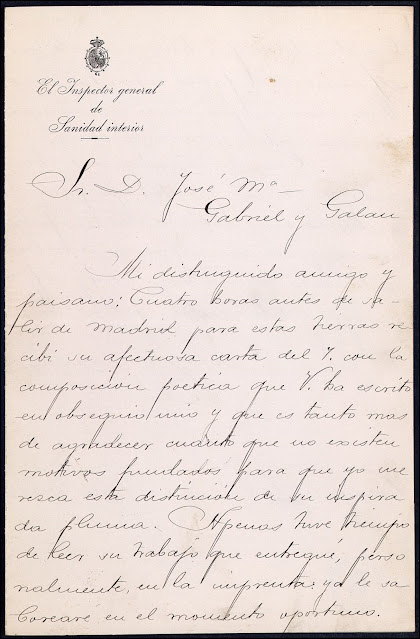 El Inspector general
de
Sanidad interior
Sr. D. José Mª
Gabriel y Galan
Mi distinguido amigo y
paisano: Cuatro horas antes de sa-
lir de Madrid para estas tierras re
cibi su afectuosa carta del 7. con la
composicion poetica que V. ha escrito
en obsequio mio y que es tanto mas
de agradecer cuanto que no existen
motivos fundados para que yo me
rezca esta distinción de su inspira
da pluma. Apenas tuve tiempo
de leer su trabajo que entregué, perso
nalmente, en la imprenta: ya le sa
borearé en el momento oportuno.